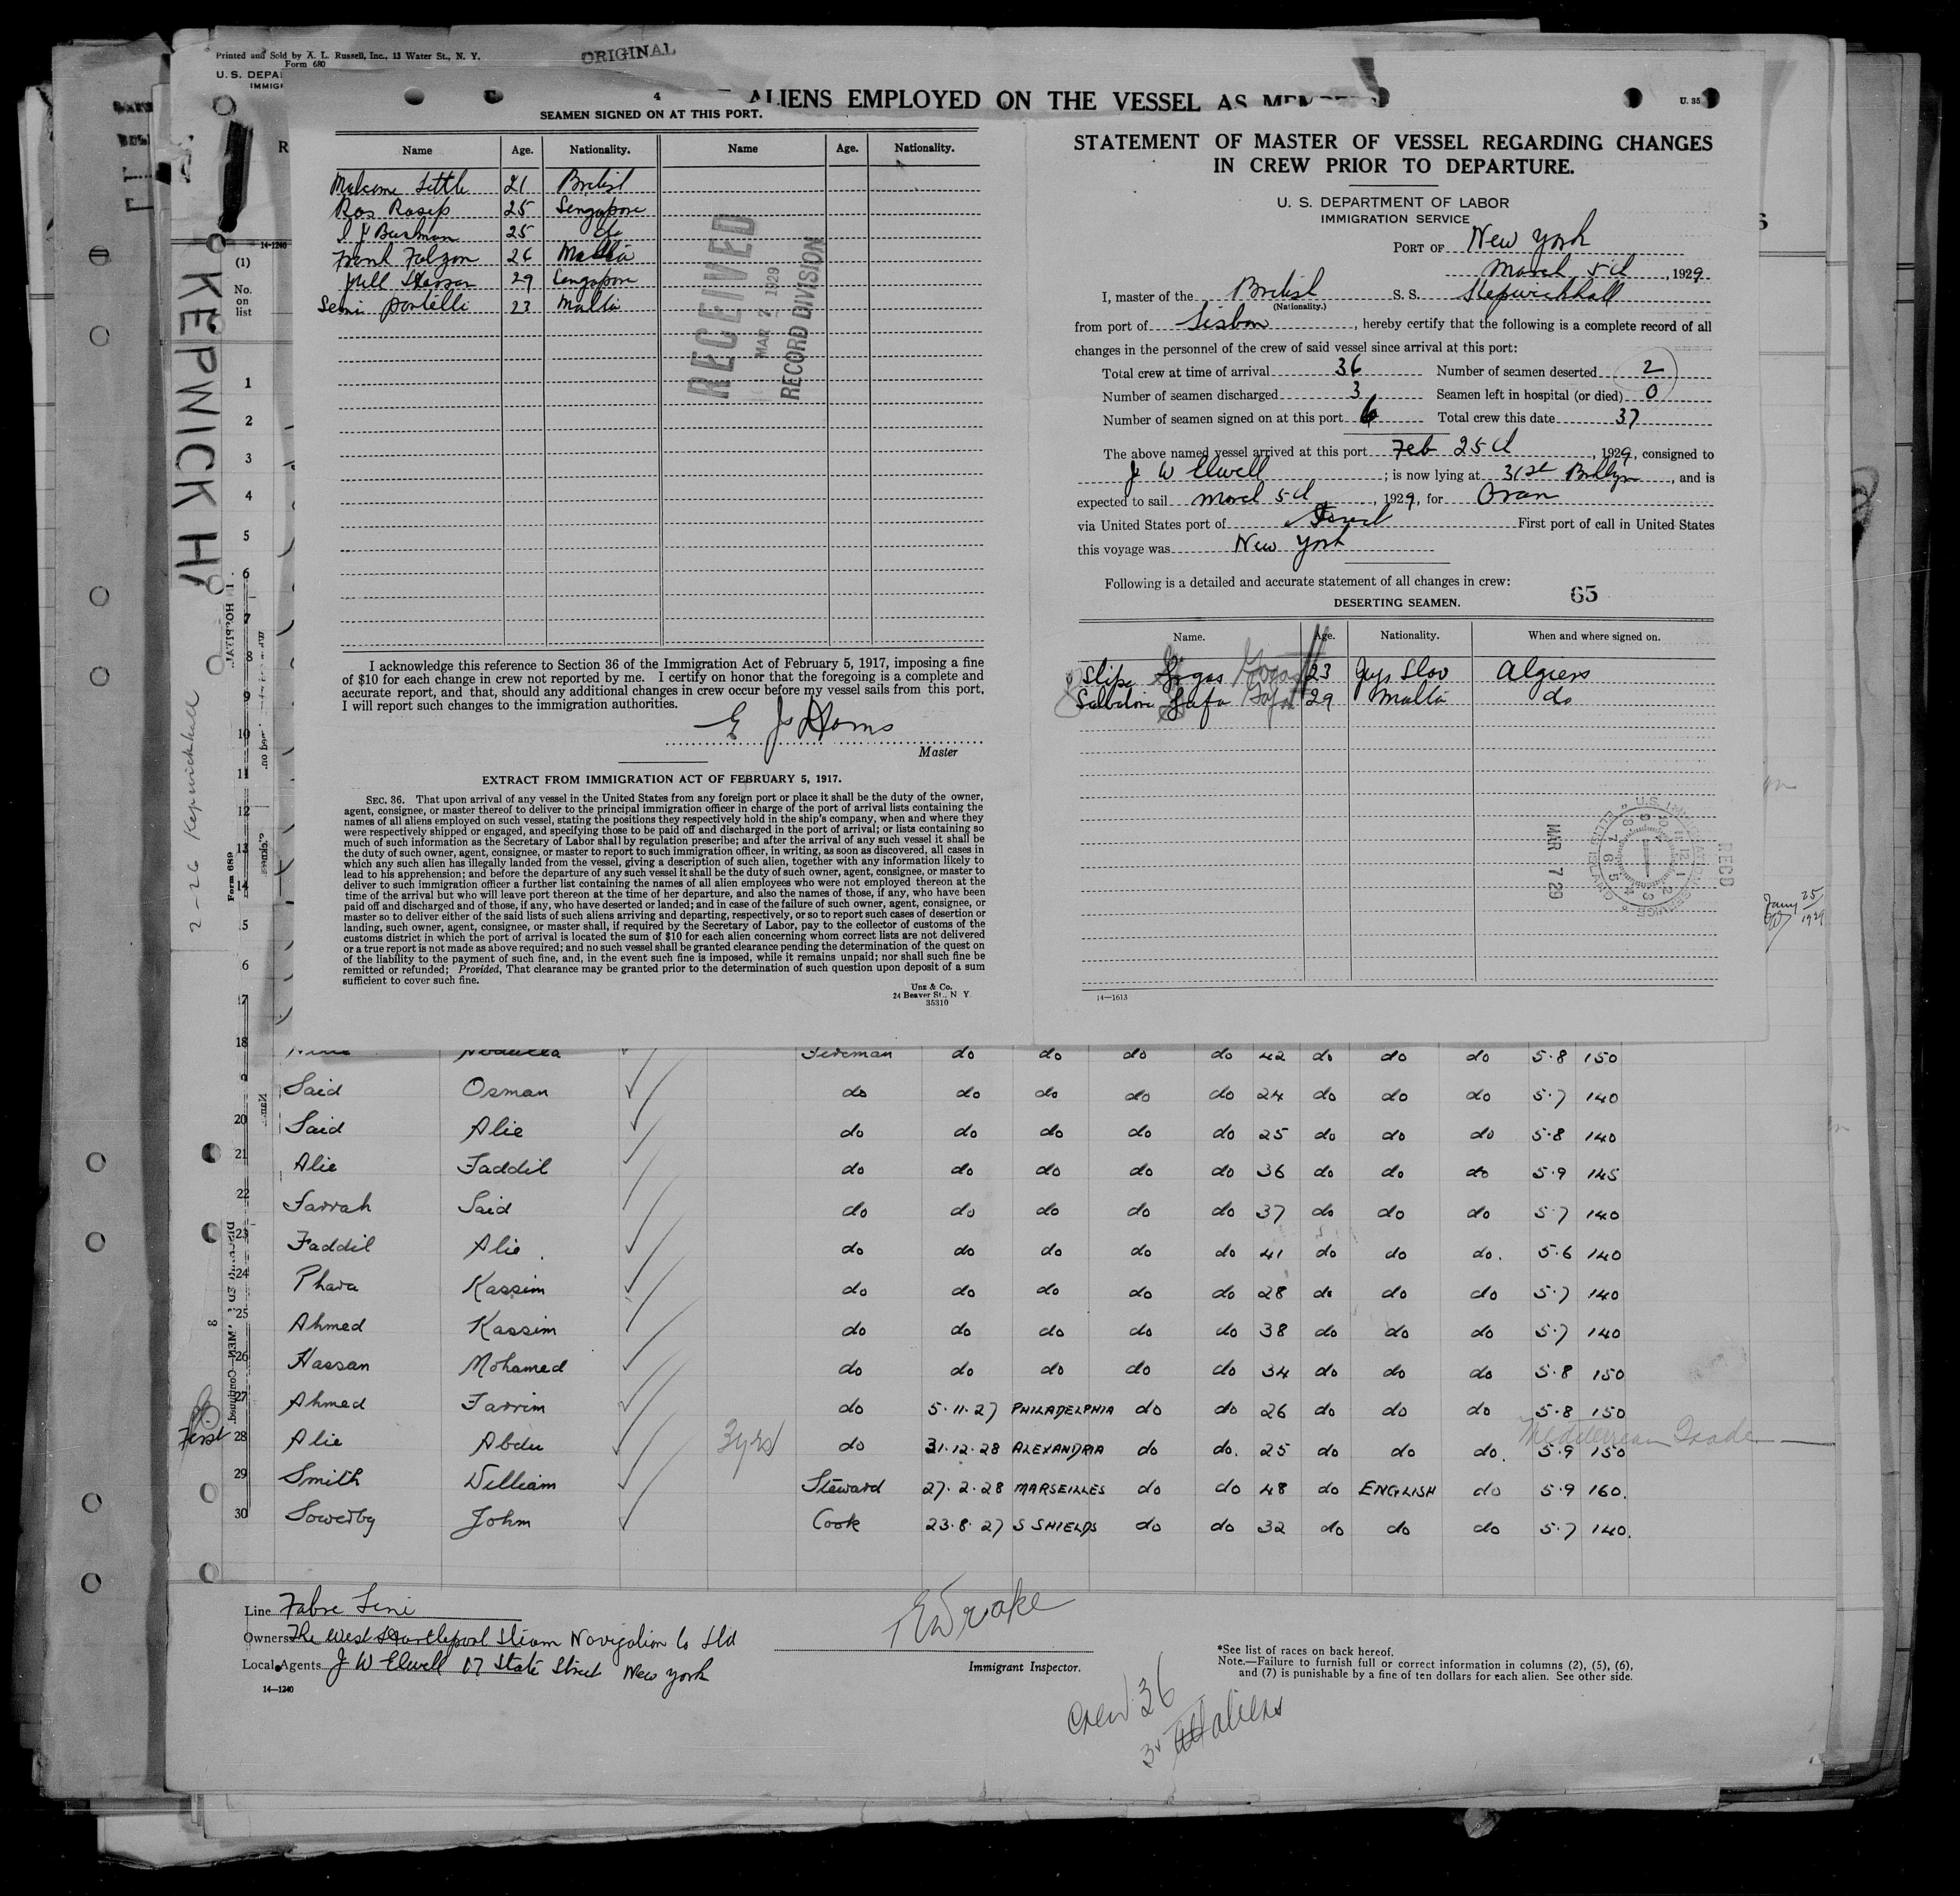 Printed and Sold by A. L. Russell, Inc., 13 Water St., N. Y.
Form 680
ORIGINAL
U. S. DEPA
IMMIG
ALIENS EMPLOYED ON THE VESSEL AS MEMBERS
U. 35
4
SEAMEN SIGNED ON AT THIS PORT.
Name Age. Nationality. Name Age. Nationality.
Malcome Little 21 British
Ros Rasip 25 Sengapore
Busman 25 do
Frank Falzon 26 Malta
Hassan 29 Sengapore
Portelli 23 Malta
RECEIVED
MAR 7 1929
RECORD DIVISION
I acknowledge this reference to Section 36 of the Immigration Act of February 5, 1917, imposing a fine
of $10 for each change in crew not reported by me. I certify on honor that the foregoing is a complete and
accurate report, and that, should any additional changes in crew occur before my vessel sails from this port,
I will report such changes to the immigration authorities.
Master
EXTRACT FROM IMMIGRATION ACT OF FEBRUARY 5, 1917.
SEC. 36. That upon arrival of any vessel in the United States from any foreign port or place it shall be the duty of the owner,
agent, consignee, or master thereof to deliver to the principal immigration officer in charge of the port of arrival lists containing the
names of all aliens employed on such vessel, stating the positions they respectively hold in the ship's company, when and where they
were respectively shipped or engaged, and specifying those to be paid off and discharged in the port of arrival; or lists containing so
much of such information as the Secretary of Labor shall by regulation prescribe; and after the arrival of any such vessel it shall be
the duty of such owner, agent, consignee, or master to report to such immigration officer, in writing, as soon as discovered, all cases in
which any such alien has illegally landed from the vessel, giving a description of such alien, together with any information likely to
lead to his apprehension; and before the departure of any such vessel it shall be the duty of such owner, agent, consignee, or master to
deliver to such immigration officer a further list containing the names of all alien employees who were not employed thereon at the
time of the arrival but who will leave port thereon at the time of her departure, and also the names of those, if any, who have been
paid off and discharged and of those, if any, who have deserted or landed; and in case of the failure of such owner, agent, consignee, or
master so to deliver either of the said lists of such aliens arriving and departing, respectively, or so to report such cases of desertion or
landing, such owner, agent, consignee, or master shall, if required by the Secretary of Labor, pay to the collector of customs of the
customs district in which the port of arrival is located the sum of $10 for each alien concerning whom correct lists are not delivered
or a true report is not made as above required; and no such vessel shall be granted clearance pending the determination of the quest on
of the liability to the payment of such fine, and, in the event such fine is imposed, while it remains unpaid; nor shall such fine be
remitted or refunded; Provided, That clearance may be granted prior to the determination of such question upon deposit of a sum
sufficient to cover such fine.
Unz & Co.
24 Beaver St., N. Y.
35310
STATEMENT OF MASTER OF VESSEL REGARDING CHANGES
IN CREW PRIOR TO DEPARTURE.
U. S. DEPARTMENT OF LABOR
IMMIGRATION SERVICE
PORT OF New York
March 5th, 1929.
I, master of the British S. S. Kepwickhall
(Nationality.)
from port of Lisbon, hereby certify that the following is a complete record of all
changes in the personnel of the crew of said vessel since arrival at this port:
Total crew at time of arrival 36 Number of seamen deserted 2
Number of seamen discharged 3 Seamen left in hospital (or died) 0
Number of seamen signed on at this port 6 Total crew this date 37
The above named vessel arrived at this port Feb 25th, 1929, consigned to
J W Elwell; is now lying at 31st Brklyn, and is
expected to sail March 5th, 1929, for Oran
via United States port of Direct First port of call in United States
this voyage was New York
Following is a detailed and accurate statement of all changes in crew:
65
DESERTING SEAMEN.
Name. Age. Nationality. When and where signed on.
Stipe Grgas 23 Jugo Slav Algiers
Salvatore Gafa 29 Malta do
U.S. IMMIGRATION SERVICE
ELLIS ISLAND
RECD
MAR 7 29
14—1613
KEPWICK H
2-26 Kepwickhall
14-1240
(1)
No.
on
list
1
2
3
4
5
6
7
8
9
10
11
12
13
14
5
6
17
Form 689
Jany 25
1929
18 Abdulla Fireman do do do do 42 do do do 5.8 150
9 Said Osman do do do do do 24 do do do 5.7 140
20 Said Alie do do do do do 25 do do do 5.8 140
21 Alie Faddil do do do do do 36 do do do 5.9 145
22 Farrah Said do do do do do 37 do do do 5.7 140
23 Faddil Alie do do do do do 41 do do do. 5.6 140
24 Phara Kassim do do do do do 28 do do do 5.7 140
25 Ahmed Kassim do do do do do 38 do do do 5.7 140
26 Hassan Mohamed do do do do do 34 do do do 5.8 150
27 Ahmed Farrim do 5.11.27 PHILADELPHIA do do 26 do do do 5.8 150
First 28 Alie Abdu 3 yrs do 31.12.28 ALEXANDRIA do do. 25 do do do. 5.9 150 Mediterrean Trade
29 Smith William Steward 27.2.28 MARSEILLES do do 48 do ENGLISH do 5.9 160.
30 Sowerby John Cook 23.8.27 S SHIELDS do do 32 do do do 5.7 140.
Line Fabre Line
Owners The West Hartlepool Steam Navigation Co Ltd
Local Agents J W Elwell 17 State Street New York
14—1240
Immigrant Inspector.
*See list of races on back hereof.
Note.—Failure to furnish full or correct information in columns (2), (5), (6),
and (7) is punishable by a fine of ten dollars for each alien. See other side.
Crew 36
aliens